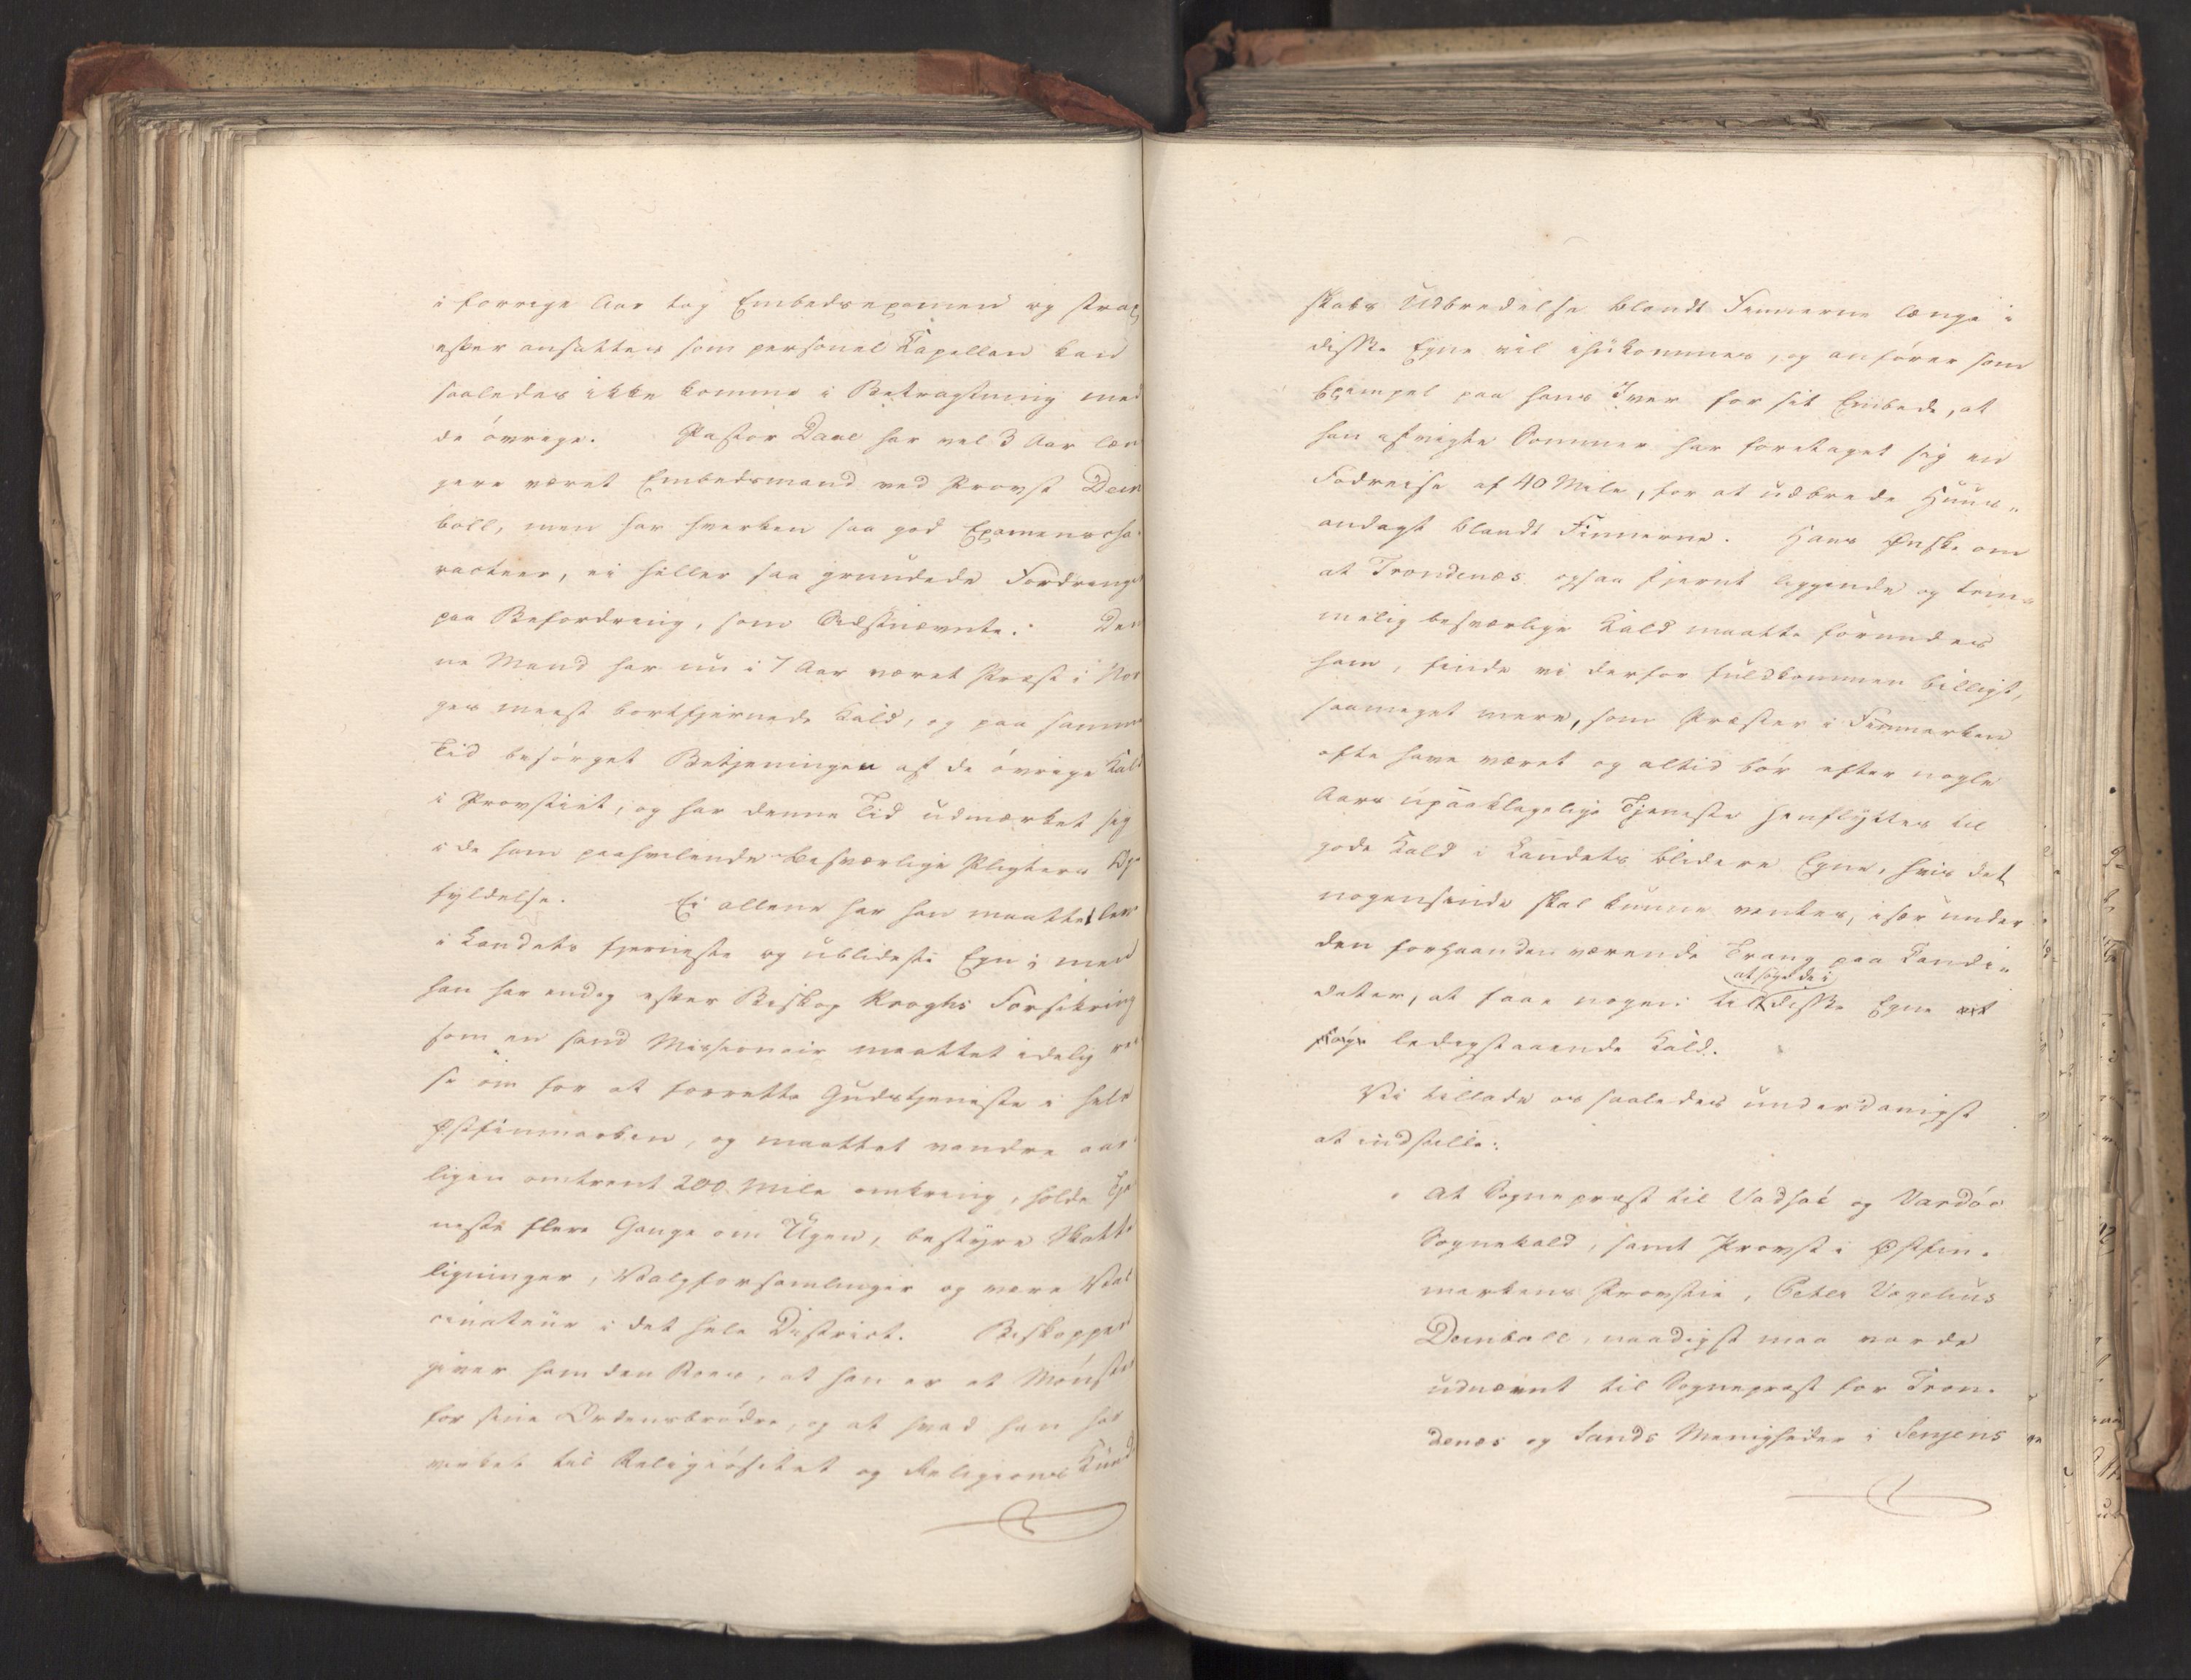 i forrige Aar tog Embedsexamen og strax
efter ansattes som personel Kapellan kan
saaledes ikke komme i Betragtning med
de övrige. Pastor Daae har vel 3 Aar læn
gere været Embedsmand end Provst Dein
boll, men har hverken saa god Examenscha
racteer, ei heller saa grundede Fordringer
paa Befordring, som Sidstnævnte. Den
ne Mand har nu i 7 Aar været Præst i Nor
ges meest bortfjernede Kald, og paa samme
Tid besörget Betjeningen af de övrige Kald
i Provstiet, og har denne Tid udmærket sig
i de ham paahvilende besværlige Pligters Op
fyldelse. Ei allene har han maattet leve
i Landets fjerneste og ublideste Egn; men
han har endog efter Biskop Kroghs Forsikring
som en sand Missionair maattet idelig rei
se om for at forrette Gudstjeneste i hele
Østfinmarken, og maattet vandre aar
ligen omtrent 200 Mile omkring, holde Tje
neste flere Gange om Ugen, bestyre Skatte
ligninger, Valgforsamlinger og være Vac
cinateur i det hele District. Biskoppen
giver ham den Roes, at han er et Mönster
for sine Ordensbrödre, og at hvad han har
virket til Religiösitet og Religions Kund
skabs Udbredelse blandt Finnerne længe i
disse Egne vil ihukommes, og anförer som
Exempel paa hans Iver for sit Embede, at
han afvigte Sommer har foretaget sig en
Fodreise af 40 Mile, for at udbrede Huus-
andagt blandt Finnerne. Hans Ønske om
at Trondenæs ogsaa fjernt liggende og tem-
melig besværlige Kald maatte forundes
ham, finde vi derfor fuldkommen billigt,
saameget mere, som Præster i Finmarken
ofte have været og altid bör efter nogle
Aars upaaklagelige Tjeneste henflyttes til
gode Kald i Landets blidere Egne, hvis det
nogensinde skal kunne ventes, især under
den forhaanden værende Trang paa Candi-
at söge de i
dater, at faae nogen til disse Egne at
söge ledigstaaende Kald.
Vi tillade os saaledes underdanigst
at indstille:
At Sognepræst til Vadsöe og Vardöe
Sognekald, samt Provst i Østfin-
markens Provstie, Peter Vogelius
Deinboll, naadigst maa vorde
udnævnt til Sognepræst for Tron-
denæs og Sands Menigheder i Senjens